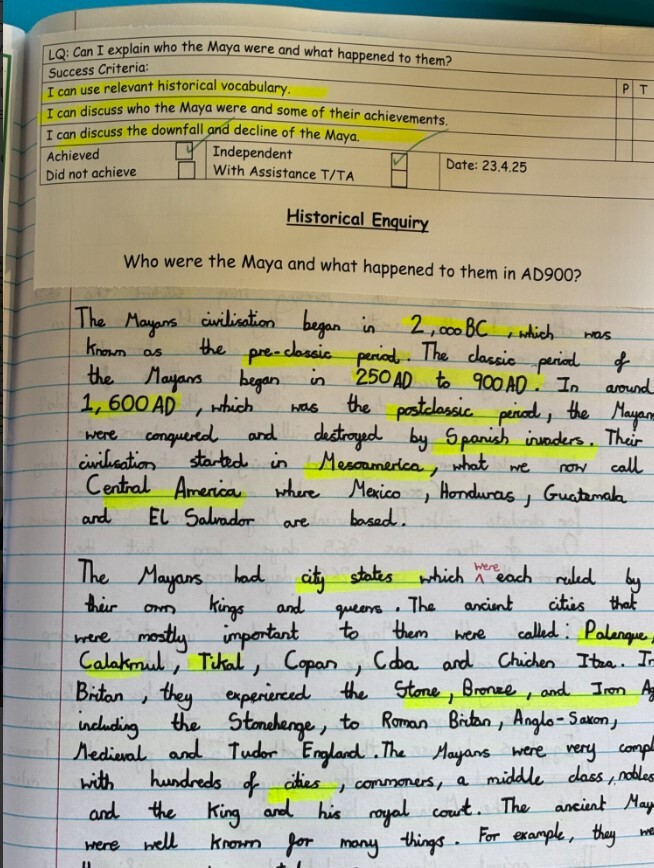 LQ: Can I explain who the Maya were and what happened to them?
Success Criteria:
P T
I can use relevant historical vocabulary.
I can discuss who the Maya were and some of their achievements.
I can discuss the downfall and decline of the Maya.
Achieved Independent
Did not achieve With Assistance T/TA Date: 23.4.25
Historical Enquiry
Who were the Maya and what happened to them in AD900?
The Mayans civilisation began in 2,000BC, which was
known as the pre-classic period. The classic period of
the Mayans began in 250AD to 900AD. In around
1,600AD, which was the postclassic period, the Mayan
were conquered and destroyed by Spanish invaders. Their
civilisation started in Mesoamerica, what we now call
Central America where Mexico, Honduras, Guatamala
and El Salvador are based.
The Mayans had city states which were each ruled by
their own kings and queens. The ancient cities that
were mostly important to them were called: Palenque,
Calakmul, Tikal, Copan, Coba and Chichen Itza. In
Britan, they experienced the Stone, Bronze, and Iron Ag
including the Stonehenge, to Roman Britan, Anglo-Saxon,
Medieval and Tudor England. The Mayans were very compl
with hundreds of cities, commoners, a middle class, nobles
and the King and his royal court. The ancient May
were well known for many things. For example, they we